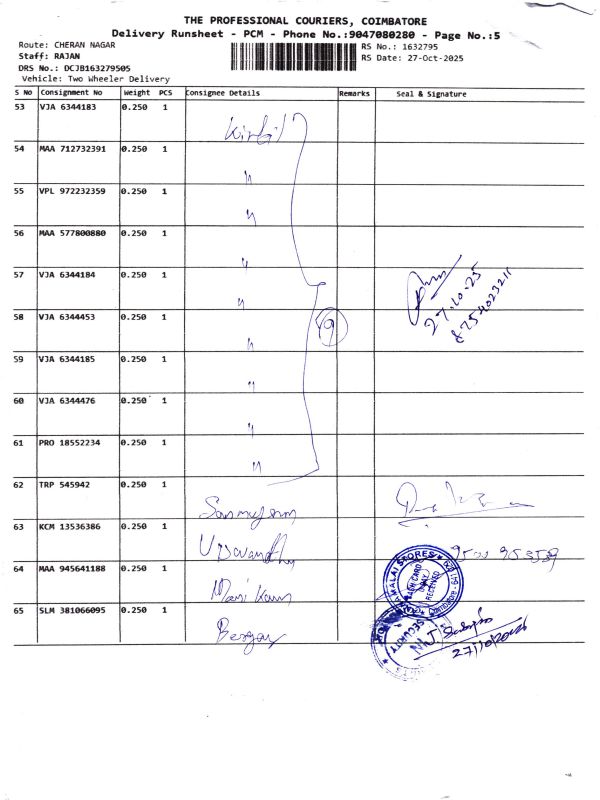 THE PROFESSIONAL COURIERS, COIMBATORE
Delivery Runsheet - PCM - Phone No.:9047080280 - Page No.:5
Route: CHERAN NAGAR
RS No.: 1632795
Staff: RAJAN
RS Date: 27-Oct-2025
DRS No.: DCJB163279505
Vehicle: Two Wheeler Delivery
S NO Consignment No Weight PCS Consignee Details Remarks Seal & Signature
53 VJA 6344183 0.250 1
54 MAA 712732391 0.250 1 "
55 VPL 972232359 0.250 1 "
56 MAA 577800880 0.250 1 "
57 VJA 6344184 0.250 1 "
58 VJA 6344453 0.250 1 "
9
27.10.25
59 VJA 6344185 0.250 1 "
60 VJA 6344476 0.250 1 "
61 PRO 18552234 0.250 1 "
62 TRP 545942 0.250 1
63 KCM 13536386 0.250 1
64 MAA 945641188 0.250 1 Mani Kam
65 SLM 381066095 0.250 1
STORES
RECEIVED
SECURITY